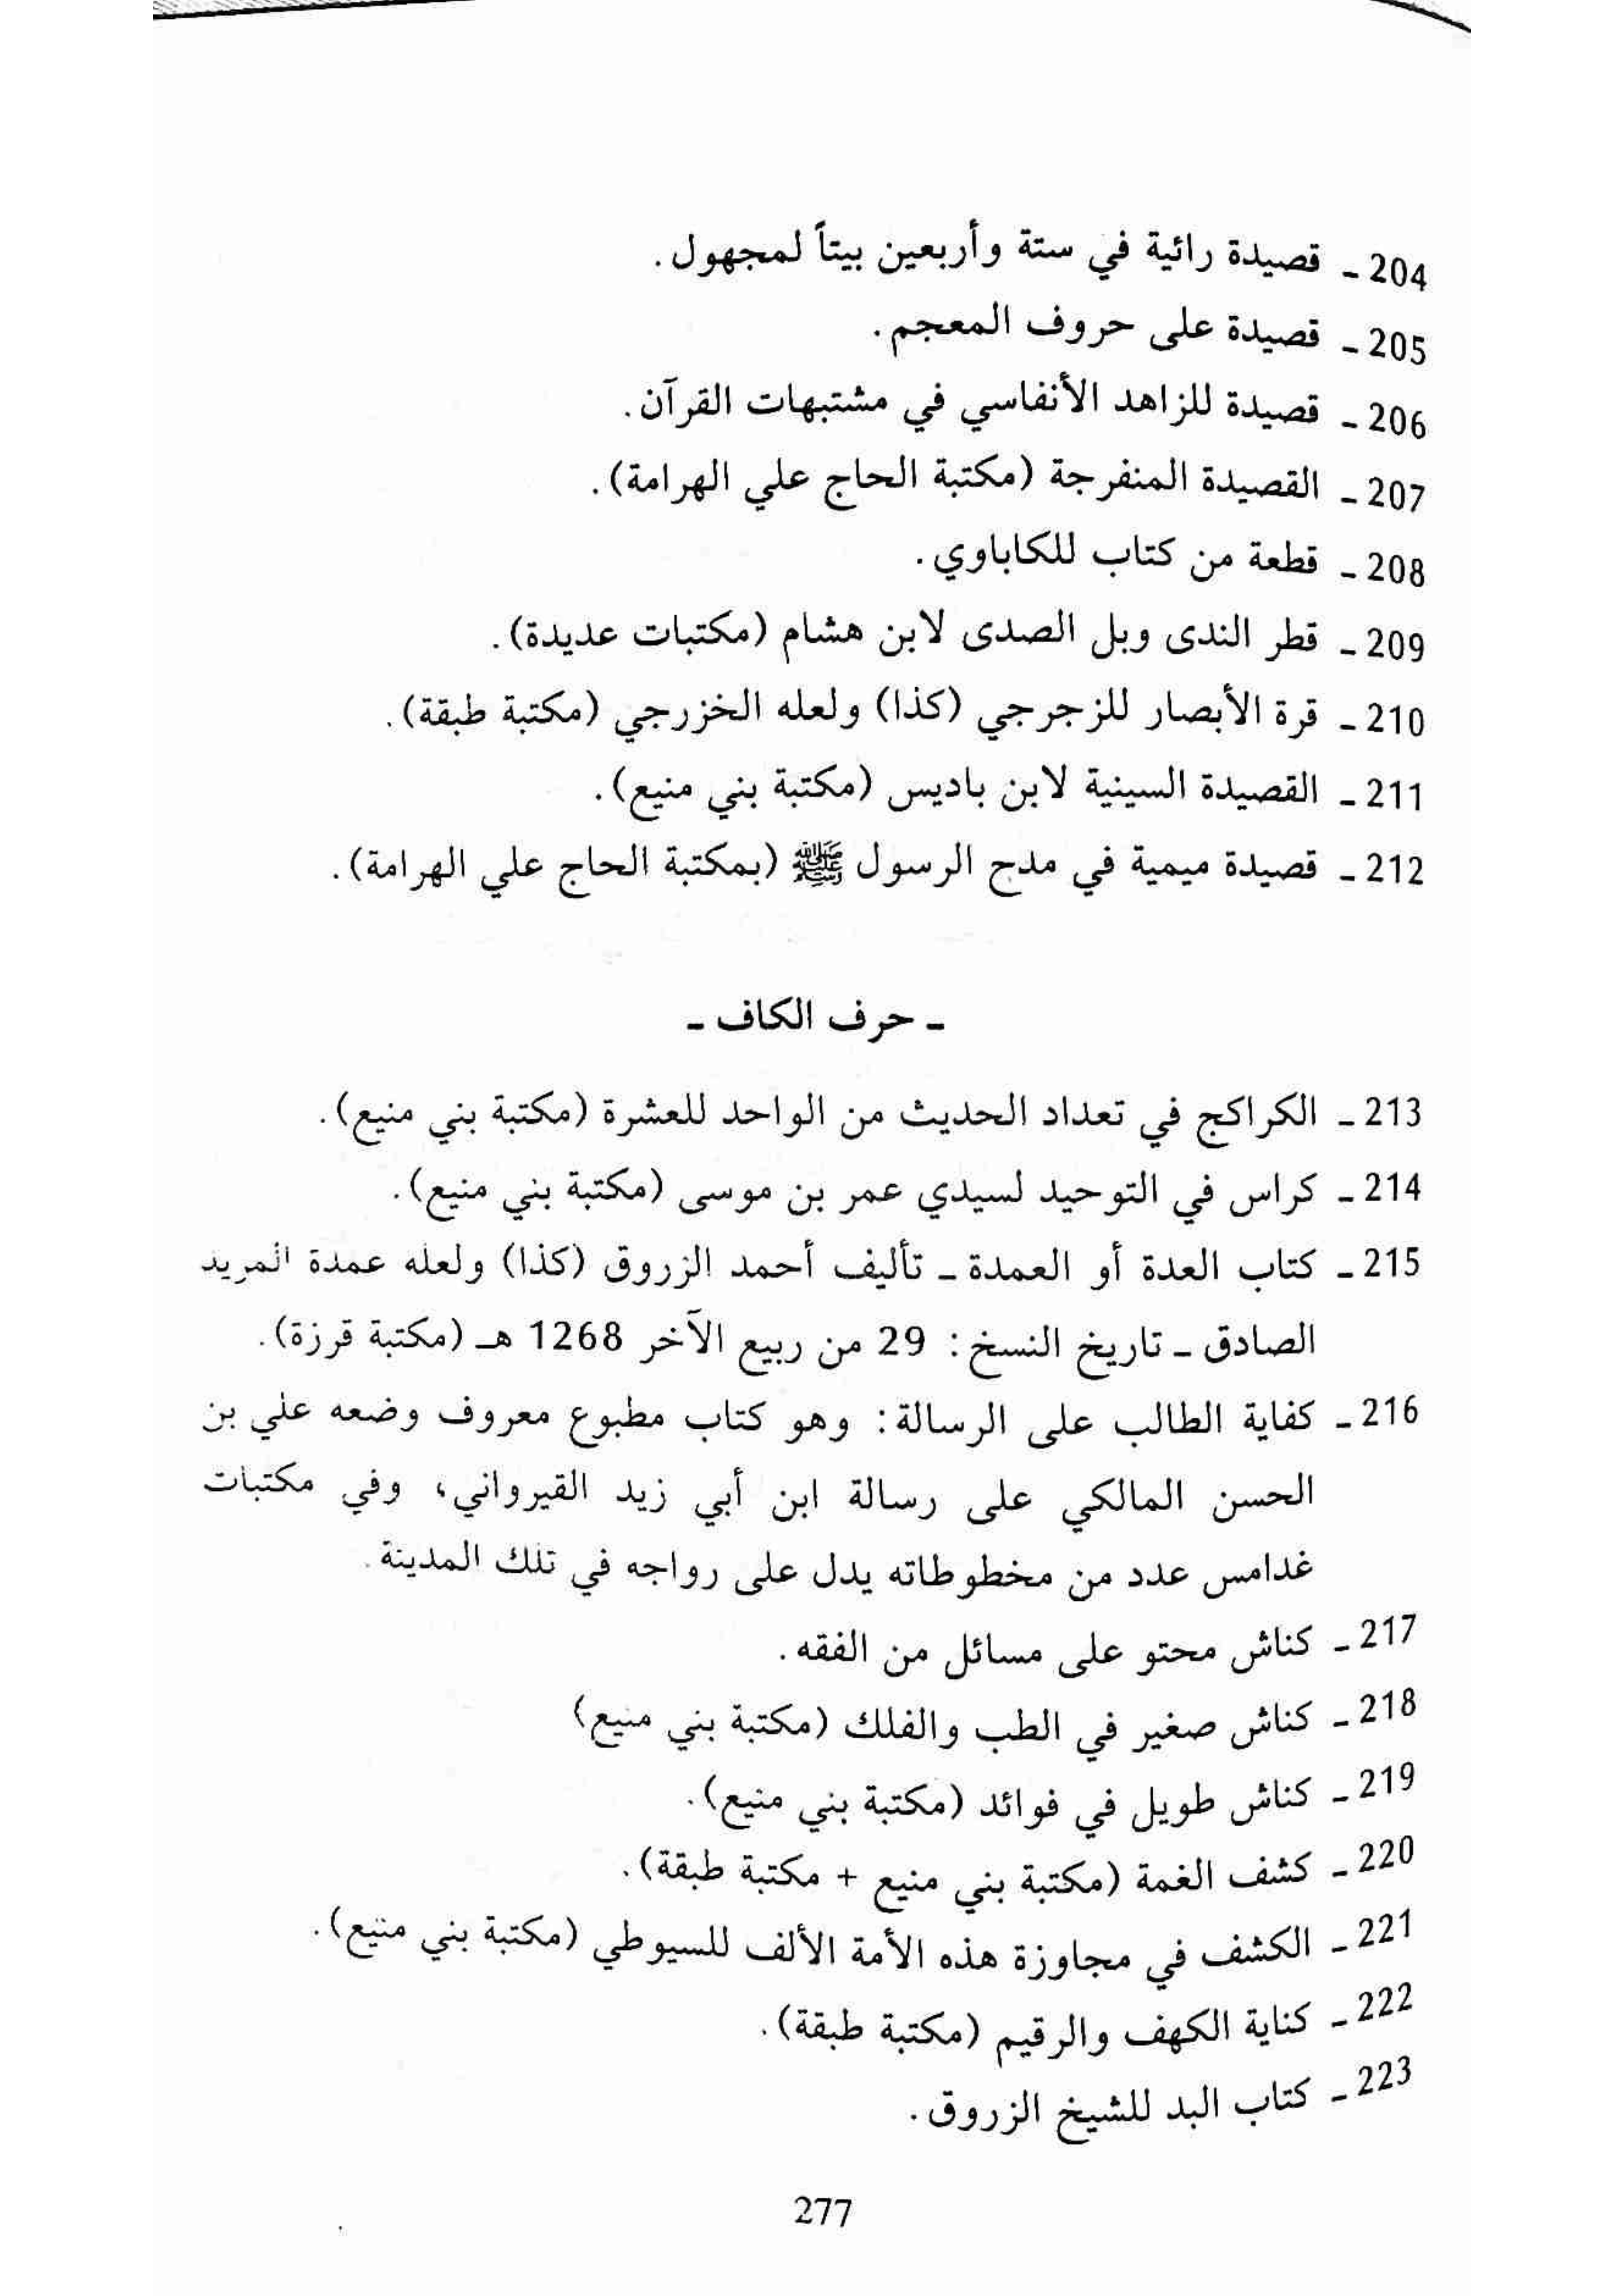 204 ـ قصيدة رائية في ستة وأربعين بيتاً لمجهول.
205 ـ قصيدة على حروف المعجم.
206 ـ قصيدة للزاهد الأنفاسي في مشتبهات القرآن.
207 ـ القصيدة المنفرجة (مكتبة الحاج علي الهرامة).
208 ـ قطعة من كتاب للكاباوي.
209 ـ قطر الندى وبل الصدى لابن هشام (مكتبات عديدة).
210 ـ قرة الأبصار للزجرجي (كذا) ولعله الخزرجي (مكتبة طبقة).
211 ـ القصيدة السينية لابن باديس (مكتبة بني منيع).
212 ـ قصيدة ميمية في مدح الرسول ﷺ (بمكتبة الحاج علي الهرامة).
ـ حرف الكاف ـ
213 ـ الكراكج في تعداد الحديث من الواحد للعشرة (مكتبة بني منيع).
214 ـ كراس في التوحيد لسيدي عمر بن موسى (مكتبة بني منيع).
215 ـ كتاب العدة أو العمدة ـ تأليف أحمد الزروق (كذا) ولعله عمدة المريد
الصادق ـ تاريخ النسخ: 29 من ربيع الآخر 1268 هـ (مكتبة قرزة).
216 ـ كفاية الطالب على الرسالة: وهو كتاب مطبوع معروف وضعه علي بن
الحسن المالكي على رسالة ابن أبي زيد القيرواني، وفي مكتبات
غدامس عدد من مخطوطاته يدل على رواجه في تلك المدينة.
217 ـ كناش محتو على مسائل من الفقه.
218 ـ كناش صغير في الطب والفلك (مكتبة بني منيع)
219 ـ كناش طويل في فوائد (مكتبة بني منيع).
220 ـ كشف الغمة (مكتبة بني منيع + مكتبة طبقة).
221 ـ الكشف في مجاوزة هذه الأمة الألف للسيوطي (مكتبة بني منيع).
222 ـ كناية الكهف والرقيم (مكتبة طبقة).
223 ـ كتاب البد للشيخ الزروق.
277